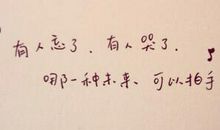 有人忘了、有人哭了.
哪一种未来、可以拍手